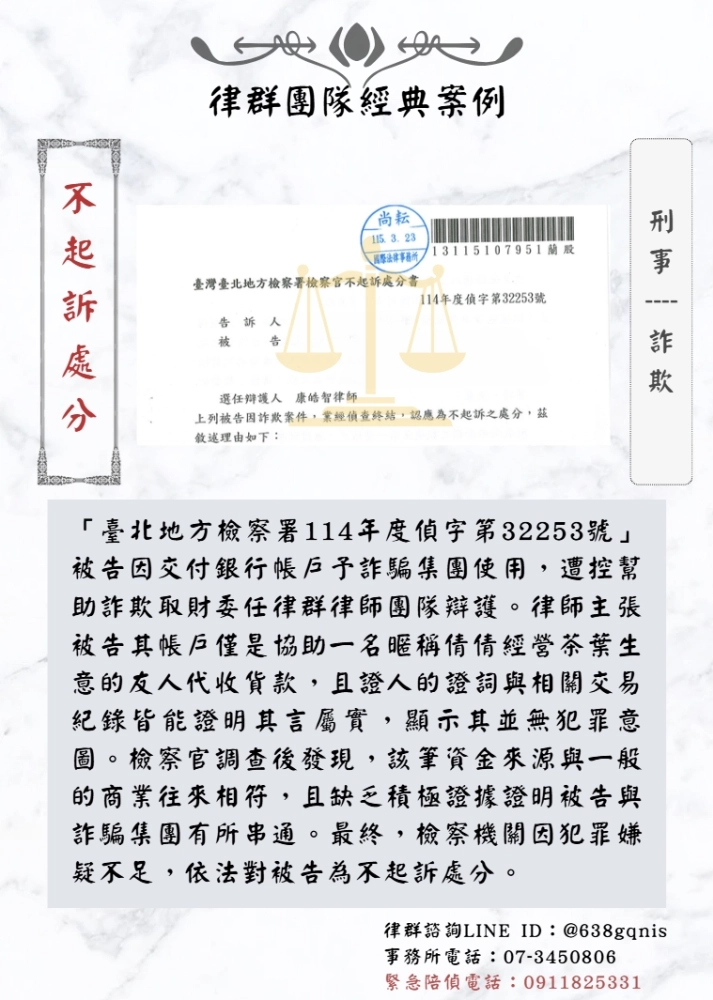 律群團隊經典案例
不起訴處分
刑事----詐欺
尚耘
115. 3. 23
國際法律事務所
13115107951 蘭股
臺灣臺北地方檢察署檢察官不起訴處分書
114年度偵字第32253號
告訴人
被告
選任辯護人 康皓智律師
上列被告因詐欺案件，業經偵查終結，認應為不起訴之處分，茲
敘述理由如下：
「臺北地方檢察署114年度偵字第32253號」
被告因交付銀行帳戶予詐騙集團使用，遭控幫
助詐欺取財委任律群律師團隊辯護。律師主張
被告其帳戶僅是協助一名暱稱倩倩經營茶葉生
意的友人代收貨款，且證人的證詞與相關交易
紀錄皆能證明其言屬實，顯示其並無犯罪意
圖。檢察官調查後發現，該筆資金來源與一般
的商業往來相符，且缺乏積極證據證明被告與
詐騙集團有所串通。最終，檢察機關因犯罪嫌
疑不足，依法對被告為不起訴處分。
律群諮詢LINE ID：@638gqnis
事務所電話：07-3450806
緊急陪偵電話：0911825331